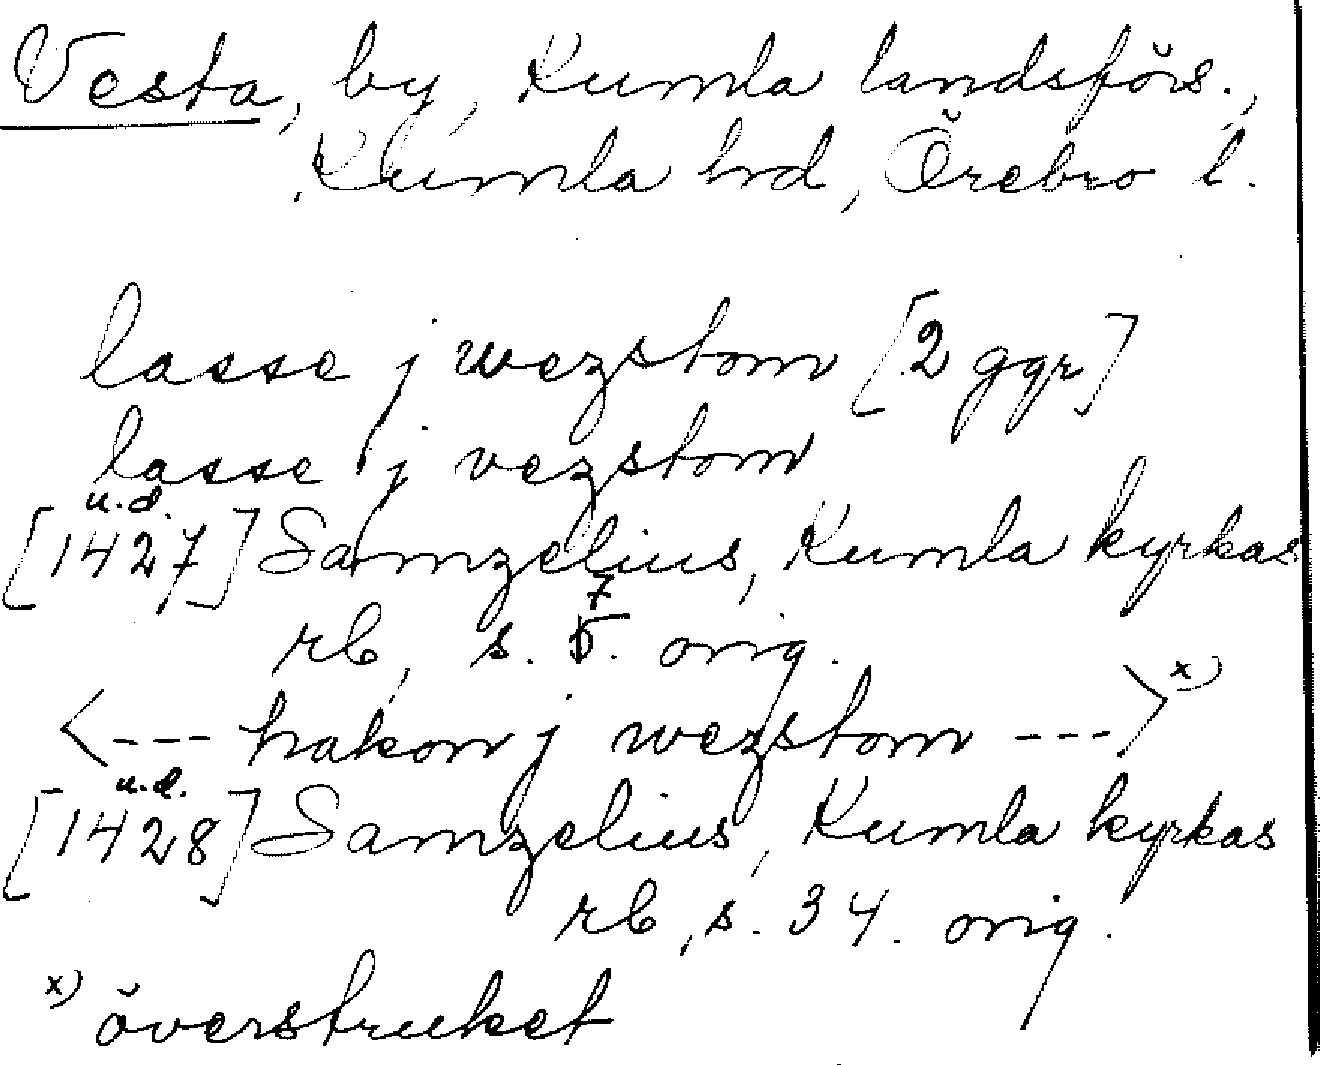 Vesta, by, Kumla landsförs.,
Kumla hrd, Örebro l.
lasse j wezstom [2 ggr]
lasse j vezstom
u.d.
[1427] Samzelius, Kumla kyrkas
7
rb, s. 5. orig.
<--- hakon j wezstom --->x)
u.d.
[1428] Samzelius, Kumla kyrkas
rb, s. 34. orig.
x) överstruket